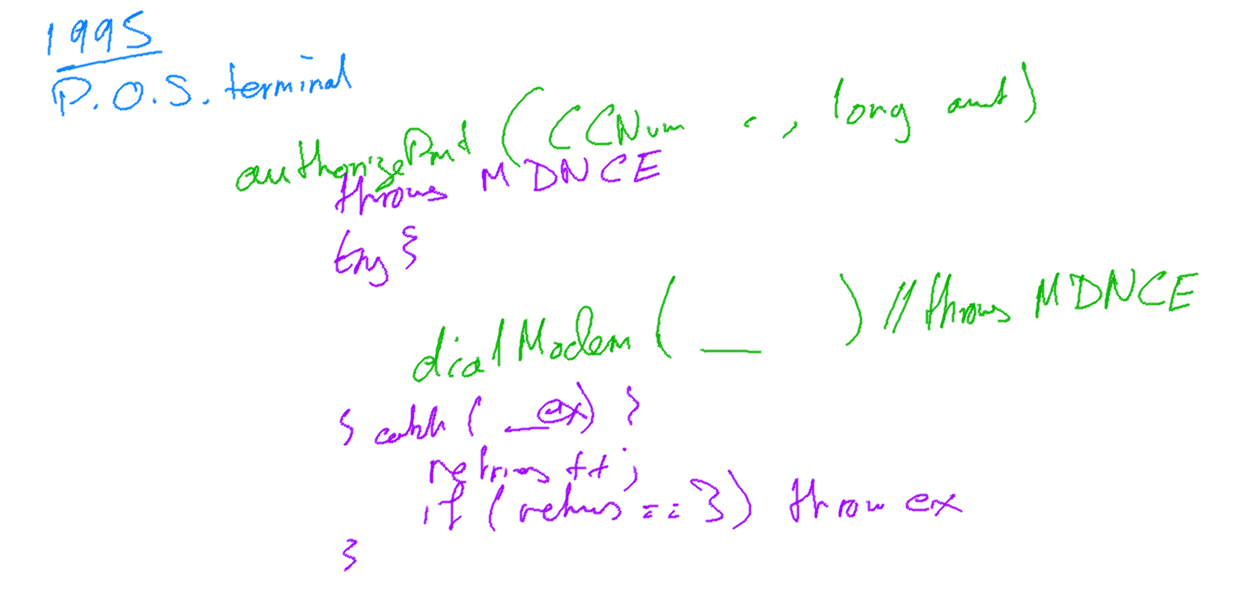 1995
P.O.S. terminal
authorizePmt (CCNum - , long amt)
throws MDNCE
try {
dialModem ( __ ) // throws MDNCE
} catch ( __ex) {
retries ++;
if (retries == 3) throw ex
}